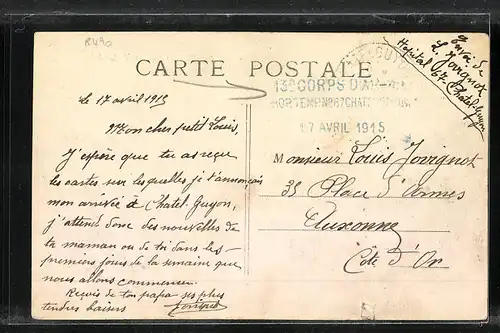 envoi de
L. Jovignot
Hopital 67. Chatel-Guyon
CARTE POSTALE
13e CORPS D'ARMÉE
HOP. TEMP. N°67 CHATEL
17 AVRIL 1915
le 17 avril 1915
Mon cher petit Louis,
J'espère que tu as reçu
les cartes sur lesquelles je t'annonçais
mon arrivée à Chatel-Guyon,
j'attends donc des nouvelles de
ta maman ou de toi dans les
premiers jours de la semaine que
nous allons commencer.
Reçois de ton papa ses plus
tendres baisers
Monsieur Louis Jovignot
35 Place d'Armes
Auxonne
Cote d'Or